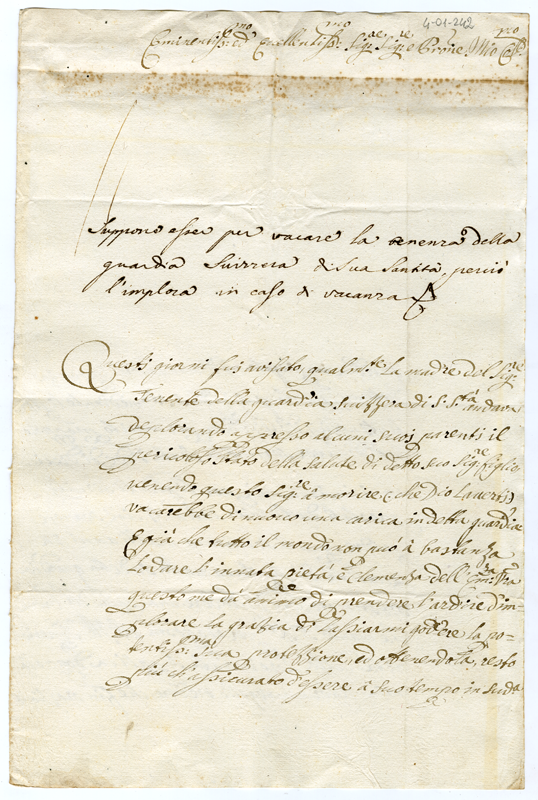 4-01-242
Eminentiss:mo ed Eccellentiss:mo Sig:re Sig:re e Prõne Mio Col:mo
Suppone esser per vacare la tenenza della
guardia Svizzera di Sua Santità, perciò
l'implora in caso di vacanza
Questi giorni fui avisato, qualm:te la madre del Sig:re
Tenente della guardia svizzera di S: S:tà andava
deplorando appresso alcuni suoi parenti il
pericoloso stato della salute di detto suo Sig:re figlio
venendo questo Sig:re à morire (che Dio
vacarebbe di nuovo una carica in detta guardia
E già che tutto il mondo non può à bastanza
lodare l'innata pietà, e Clemenza dell' Em:za V:ra
questo me dà animo di prendere l'ardire d'im-
plorare la grazia di lassiarmi godere la po-
tentiss:ma sua protezzione, ed ottenendola, resto
più ch'assicurato d'essere à suo tempo in